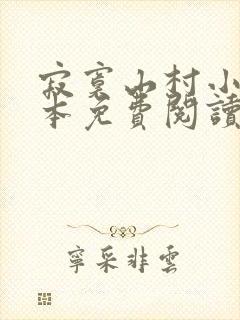 寂寞山村小
本免費閱讀
寧采非雲